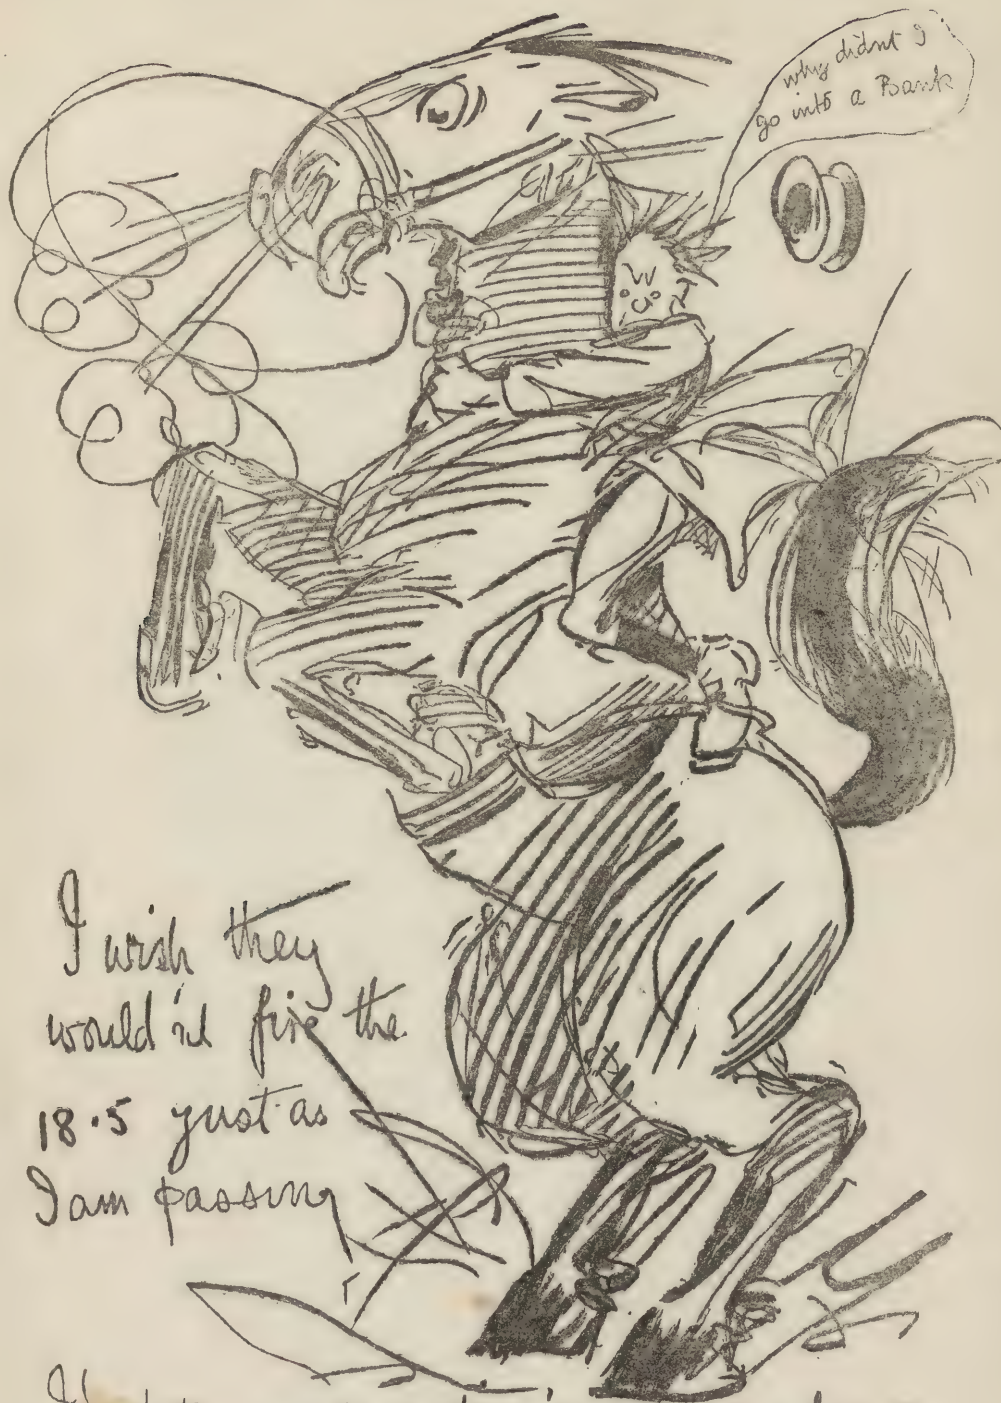 why didnt I
go into a Bank
I wish they
would'nt fire the
18.5 just as
I am passing